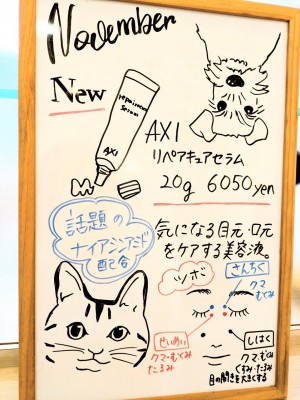 November
New
repaircure
Serum
AXI
AXI
リペアキュアセラム
20g 6050yen
話題の
ナイアシンアミド
配合
気になる目元・口元
をケアする美容液。
ツボ
さんちく
クマ
むくみ
せいめい
クマ・むくみ
たるみ
しはく
クマ・むくみ
くすみ・たるみ
目の開きを大きくする